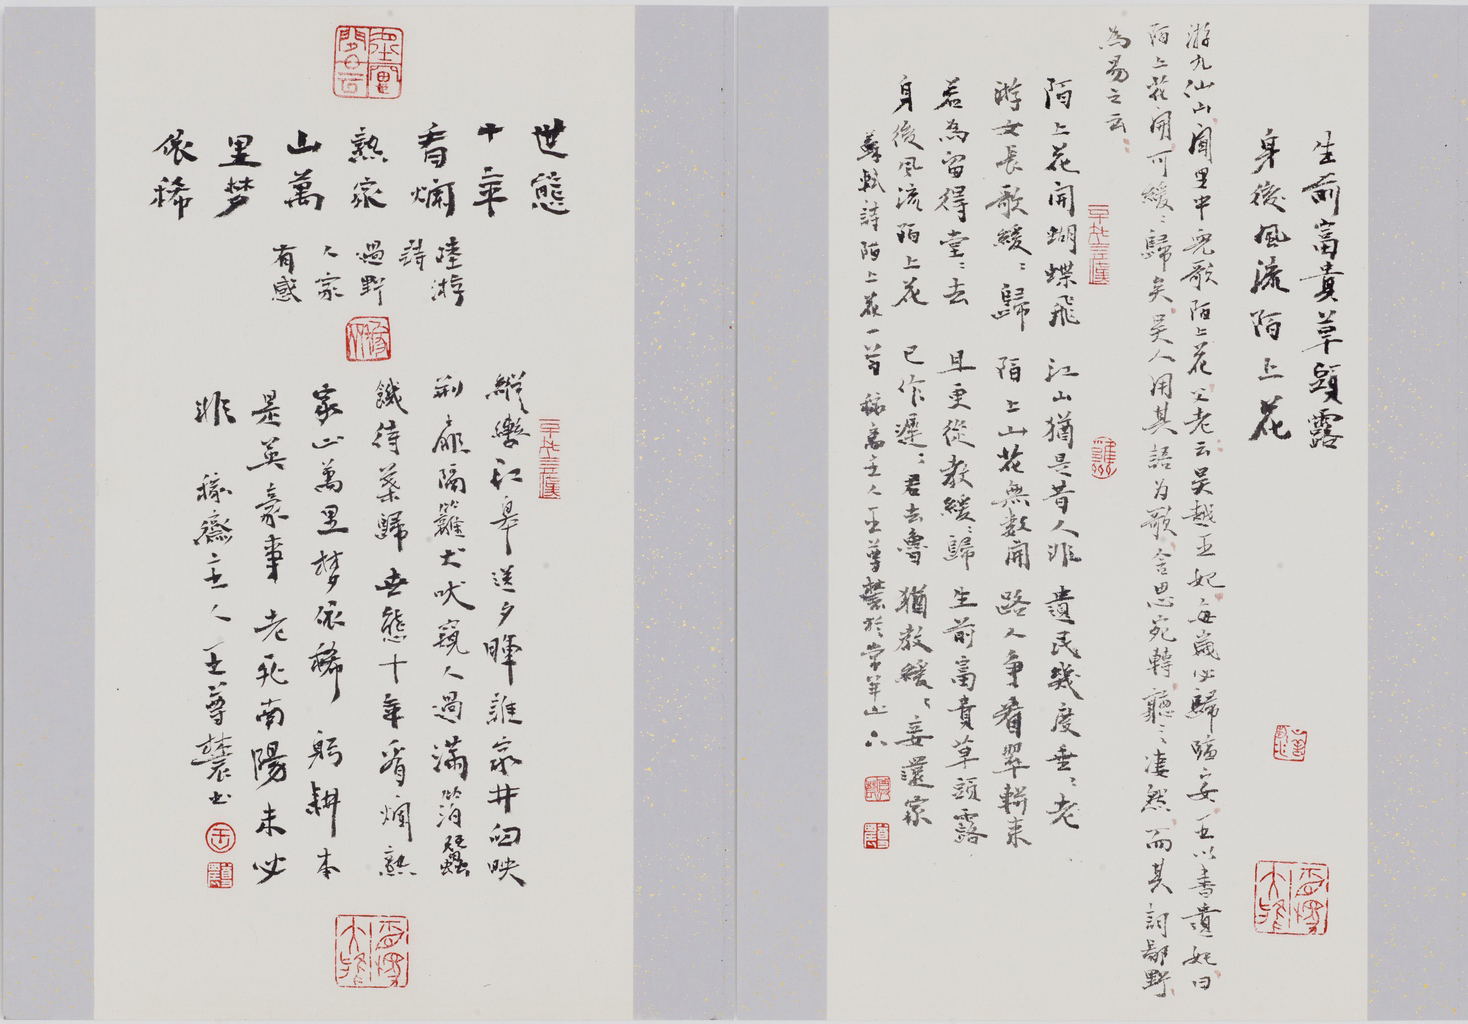 生前富貴草頭露
身後風流陌上花
游九仙山聞里中兒歌陌上花父老云吳越王妃每歲必歸臨安王以書遺妃曰
陌上花開可緩〻歸矣吳人用其語为歌含思宛轉聽之凄然而其詞鄙野
為易之云
陌上花開蝴蝶飛 江山猶是昔人非 遺民幾度垂〻老
游女長歌緩〻歸 陌上山花無數開 路人争看翠軿来
若為留得堂〻去 且更從教緩〻歸 生前富貴草頭露
身後風流陌上花 已作遲〻君去魯 猶教緩〻妾還家
蘇軾詩陌上花一首 稼齋主人王尊農於崇羊山六
世態
十年
看爛
熟家
山萬
里梦
依稀
陸游
詩
過野
人家
有感
縱轡江皋送夕暉誰家井臼映
荊扉隔籬犬吠窺人過滿箔蠶
饑待葉歸世態十年看爛熟
家山萬里梦依稀躬耕本
是英豪事老死南陽未必
非 稼齋主人王尊農书